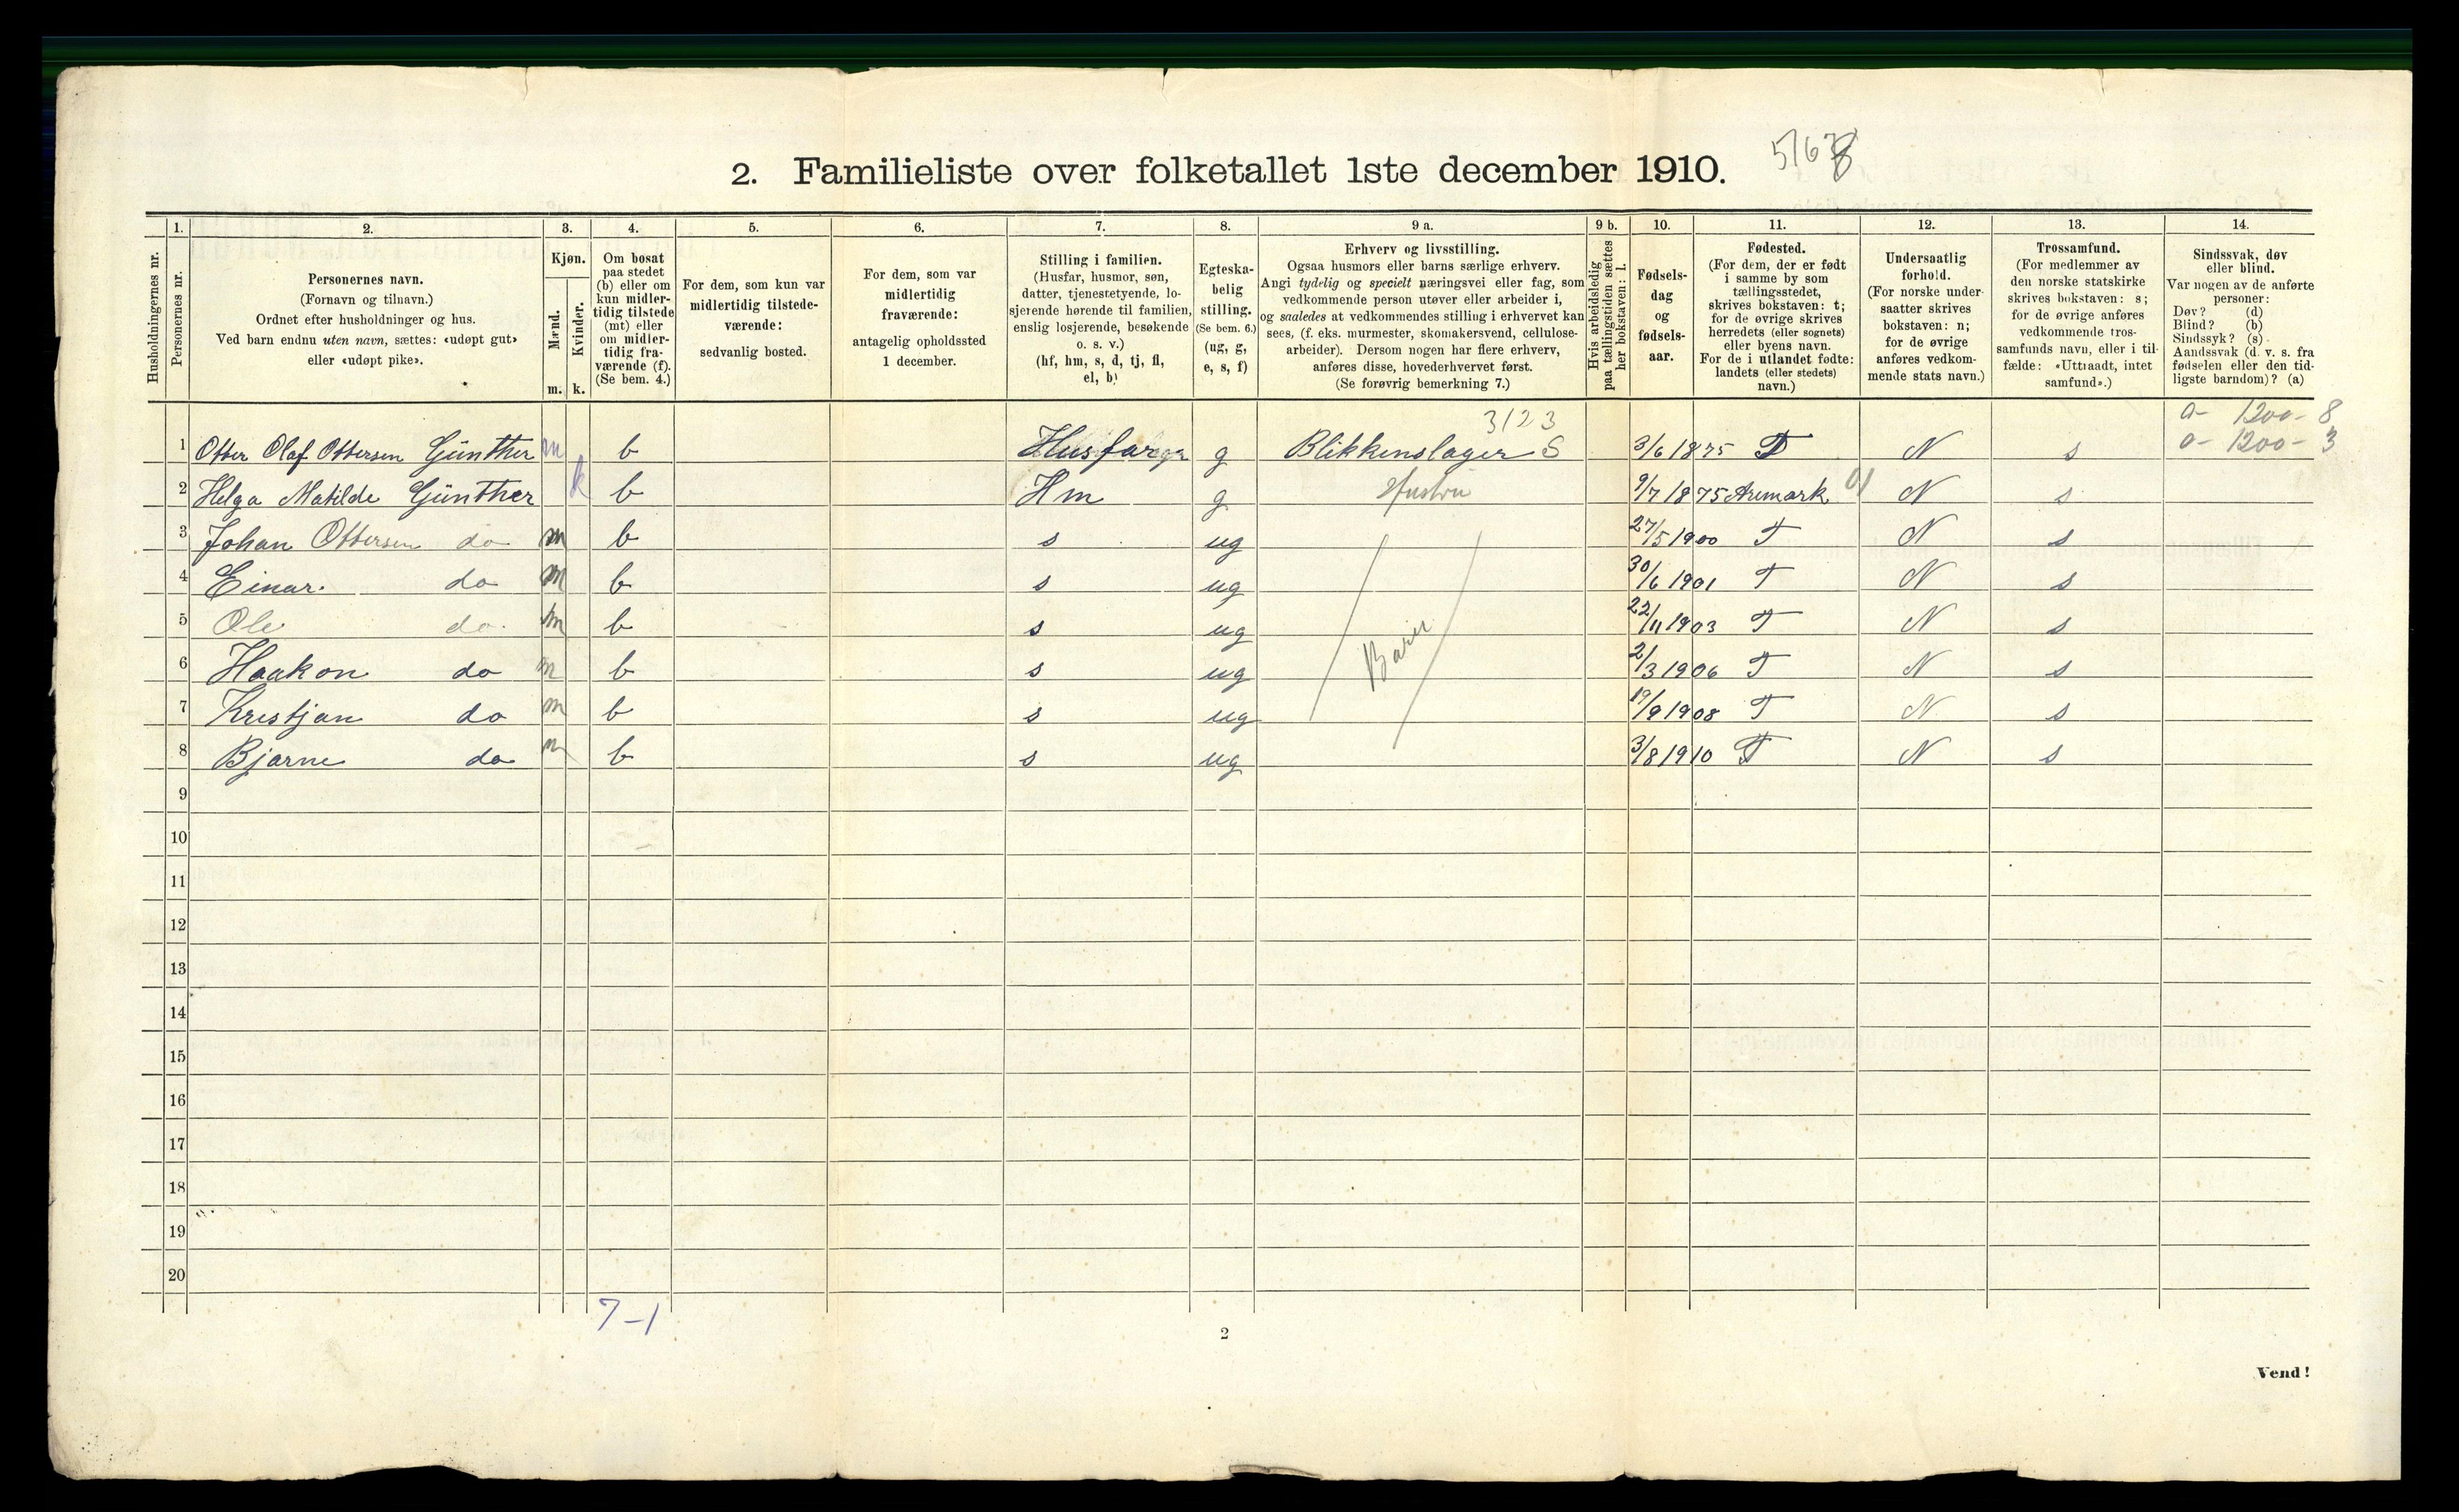 2. Familieliste over folketallet 1ste december 1910.
1. 2. 3. 4. 5. 6. 7. 8. 9 a. 9 b. 10. 11. 12. 13. 14.
Husholdningernes nr.
Personernes nr.
Personernes navn.
(Fornavn og tilnavn.)
Ordnet efter husholdninger og hus.
Ved barn endnu uten navn, sættes: «udøpt gut»
eller «udøpt pike».
Kjøn.
Mænd.
Kvinder.
m. k.
Om bosat
paa stedet
(b) eller om
kun midler-
tidig tilstede
(mt) eller
om midler-
tidig fra-
værende (f).
(Se bem. 4.)
For dem, som kun var
midlertidig tilstede-
værende:
sedvanlig bosted.
For dem, som var
midlertidig
fraværende:
antagelig opholdssted
1 december.
Stilling i familien.
(Husfar, husmor, søn,
datter, tjenestetyende, lo-
sjerende hørende til familien,
enslig losjerende, besøkende
o. s. v.)
(hf, hm, s, d, tj, fl,
el, b)
Egteska-
belig
stilling.
(Se bem. 6.)
(ug, g,
e, s, f)
Erhverv og livsstilling.
Ogsaa husmors eller barns særlige erhverv.
Angi tydelig og specielt næringsvei eller fag, som
vedkommende person utøver eller arbeider i,
og saaledes at vedkommendes stilling i erhvervet kan
sees, (f. eks. murmester, skomakersvend, cellulose-
arbeider). Dersom nogen har flere erhverv,
anføres disse, hovederhvervet først.
(Se forøvrig bemerkning 7.)
Hvis arbeidsledig
paa tællingstiden sættes
her bokstaven: l.
Fødsels-
dag
og
fødsels-
aar.
Fødested.
(For dem, der er født
i samme by som
tællingsstedet,
skrives bokstaven: t;
for de øvrige skrives
herredets (eller sognets)
eller byens navn.
For de i utlandet fødte:
landets (eller stedets)
navn.)
Undersaatlig
forhold.
(For norske under-
saatter skrives
bokstaven: n;
for de øvrige
anføres vedkom-
mende stats navn.)
Trossamfund.
(For medlemmer av
den norske statskirke
skrives bokstaven: s;
for de øvrige anføres
vedkommende tros-
samfunds navn, eller i til-
fælde: «Uttraadt, intet
samfund».)
Sindssvak, døv
eller blind.
Var nogen av de anførte
personer:
Døv? (d)
Blind? (b)
Sindssyk? (s)
Aandssvak (d. v. s. fra
fødselen eller den tid-
ligste barndom)? (a)
3123 0- 1200- 8
1 Otter Olaf Ottersen Günther m b Husfar g Blikkenslager S 3/6 1875 T N s 0- 1200- 3
2 Helga Matilde Günther k b Hm g Hustru 9/7 1875 Aremark 01 N s
3 Johan Ottersen do m b s ug 27/5 1900 T N s
4 Einar do m b s ug 30/6 1901 T N s
5 Ole do m b s ug 22/11 1903 T N s
6 Haakon do m b s ug Barn 2/3 1906 T N s
7 Kristjan do m b s ug 19/9 1908 T N s
8 Bjarne do m b s ug 3/8 1910 T N s
9
10
11
12
13
14
15
16
17
18
19
20
7-1
2
Vend!